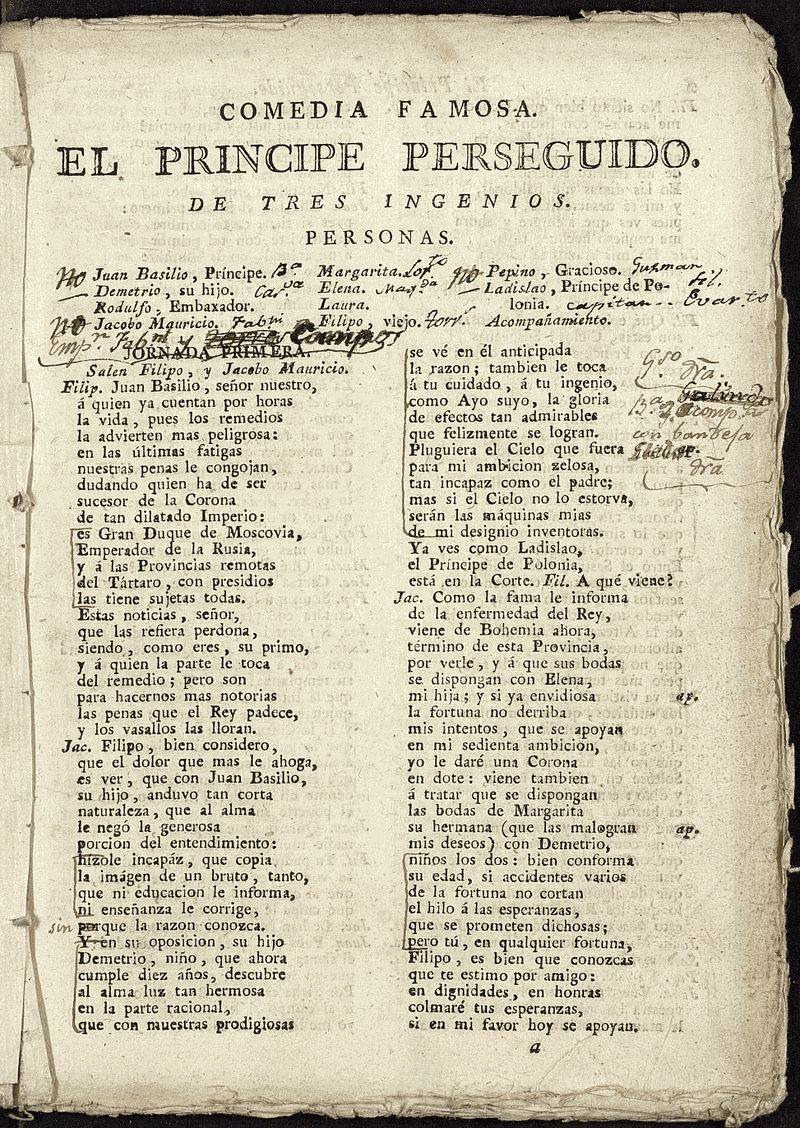 COMEDIA FAMOSA.
EL PRINCIPE PERSEGUIDO.
DE TRES INGENIOS.
PERSONAS.
No Juan Basilio, Príncipe. Ba
Demetrio, su hijo.
Rodulfo, Embaxador.
No Jacobo Mauricio.
Margarita.
Elena.
Laura.
Filipo, viejo.
No Pepino, Gracioso. Guzman
Ladislao, Príncipe de Po-
lonia. capitan
Acompañamiento.
JORNADA PRIMERA.
Salen Filipo, y Jacobo Mauricio.
Filip. Juan Basilio, señor nuestro,
á quien ya cuentan por horas
la vida, pues los remedios
la advierten mas peligrosa:
en las últimas fatigas
nuestras penas le congojan,
dudando quien ha de ser
sucesor de la Corona
de tan dilatado Imperio:
es Gran Duque de Moscovia,
Emperador de la Rusia,
y á las Provincias remotas
del Tártaro, con presidios
las tiene sujetas todas.
Estas noticias, señor,
que las refiera perdona,
siendo, como eres, su primo,
y á quien la parte le toca
del remedio; pero son
para hacernos mas notorias
las penas que el Rey padece,
y los vasallos las lloran.
Jac. Filipo, bien considero,
que el dolor que mas le ahoga,
es ver, que con Juan Basilio,
su hijo, anduvo tan corta
naturaleza, que al alma
le negó la generosa
porcion del entendimiento:
hízole incapáz, que copia
la imágen de un bruto, tanto,
que ni educacion le informa,
ni enseñanza le corrige,
sin porque la razon conozca.
Y en su oposicion, su hijo
Demetrio, niño, que ahora
cumple diez años, descubre
al alma luz tan hermosa
en la parte racional,
que con muestras prodigiosas
se vé en él anticipada
la razon; tambien le toca
á tu cuidado, á tu ingenio,
como Ayo suyo, la gloria
de efectos tan admirables
que felizmente se logran.
Pluguiera el Cielo que fuera ap.
para mi ambicion zelosa,
tan incapaz como el padre;
mas si el Cielo no lo estorva,
serán las máquinas mias
de mi designio inventoras.
Ya ves como Ladislao,
el Príncipe de Polonia,
está en la Corte. Fil. A qué viene?
Jac. Como la fama le informa
de la enfermedad del Rey,
viene de Bohemia ahora,
término de esta Provincia,
por verle, y á que sus bodas
se dispongan con Elena,
mi hija; y si ya envidiosa ap.
la fortuna no derriba
mis intentos, que se apoyan
en mi sedienta ambicion,
yo le daré una Corona
en dote: viene tambien
á tratar que se dispongan
las bodas de Margarita
su hermana (que las malogran ap.
mis deseos) con Demetrio,
niños los dos: bien conforma
su edad, si accidentes varios
de la fortuna no cortan
el hilo á las esperanzas,
que se prometen dichosas;
pero tú, en qualquier fortuna,
Filipo, es bien que conozcas
que te estimo por amigo:
en dignidades, en honras
colmaré tus esperanzas,
si en mi favor hoy se apoyan.
con bandeja
a